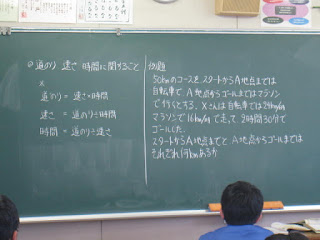 ◎道のり 速さ 時間に関すること
×
道のり = 速さ×時間
速さ = 道のり÷時間
時間 = 道のり÷速さ
例題
50kmのコースを、スタートからA地点までは
自転車で、A地点からゴールまではマラソン
で行くとする。Xさんは自転車では24km/h
マラソンで16km/hで走って、2時間30分で
ゴールした。
スタートからA地点までと A地点からゴールまでは
それぞれ何kmあるか